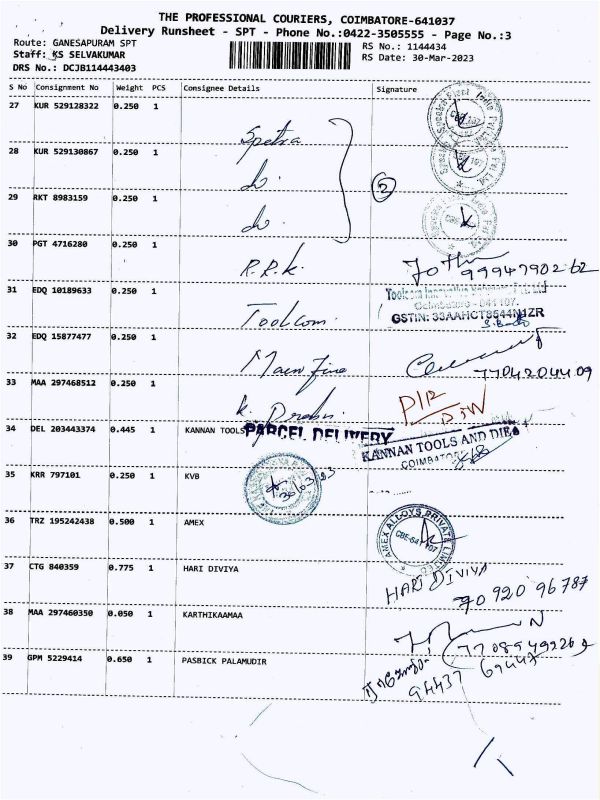 THE PROFESSIONAL COURIERS, COIMBATORE-641037
Delivery Runsheet - SPT - Phone No.:0422-3505555 - Page No.:3
Route: GANESAPURAM SPT
RS No.: 1144434
Staff: KS SELVAKUMAR
RS Date: 30-Mar-2023
DRS No.: DCJB114443403
S No Consignment No Weight PCS Consignee Details Signature
27 KUR 529128322 0.250 1
Spetra
28 KUR 529130867 0.250 1
do.
2
29 RKT 8983159 0.250 1
do.
30 PGT 4716280 0.250 1
R.R.K.
9994790262
31 EDQ 10189633 0.250 1
Toolcom.
Coimbatore - 641 107.
GSTIN: 33AAHCT8544N1ZR
32 EDQ 15877477 0.250 1
Main Fine
7704204409
33 MAA 297468512 0.250 1
34 DEL 203443374 0.445 1 KANNAN TOOLS
PARCEL DELIVERY
KANNAN TOOLS AND DIES
COIMBATORE
35 KRR 797101 0.250 1 KVB
30/03/23
36 TRZ 195242438 0.500 1 AMEX
AMEX ALLOYS PRIVATE LIMITED
CBE-641 107
37 CTG 840359 0.775 1 HARI DIVIYA
HARI DIVIYA
70920 96787
38 MAA 297460350 0.050 1 KARTHIKAAMAA
39 GPM 5229414 0.650 1 PASBICK PALAMUDIR
94437 69447